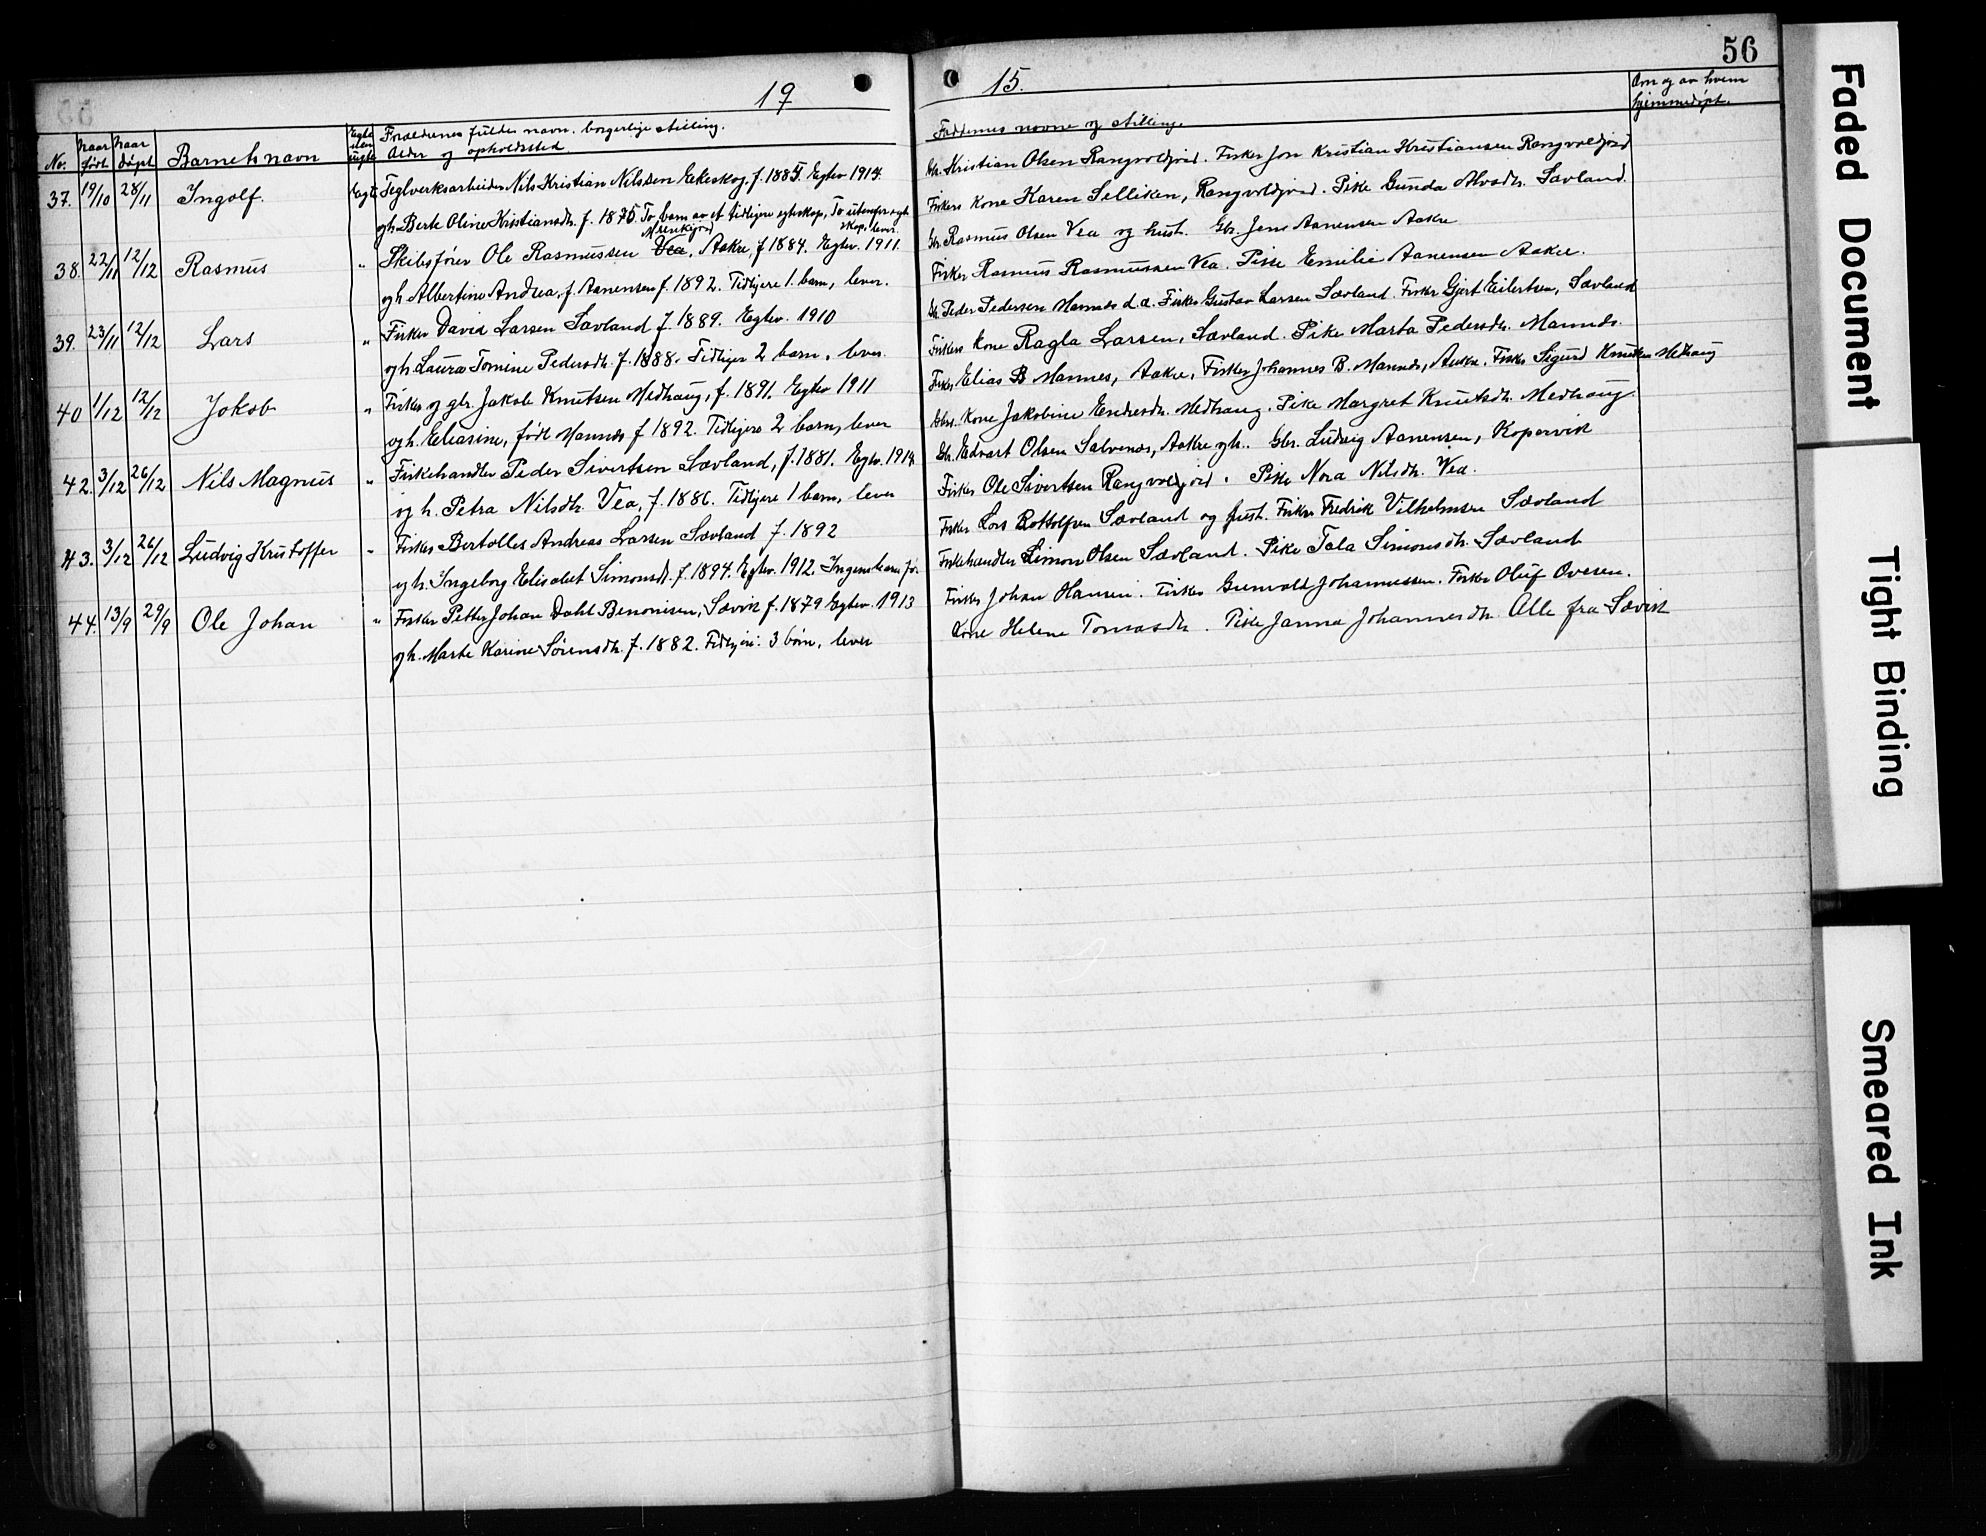 56
19 15.
No. Naar født Naar døpt Barnets navn Egte eller uegte Forældrenes fulde navn, borgerlige stilling. Alder og opholdssted Faddernes navne og stilling. Om og av hvem hjemmedøpt.
37. 19/10 28/11 Ingolf. Egte Teglverksarbeider Nils Kristian Nilssen Ekeskog, f. 1885. Egtev. 1914. Gbr. Kristian Olsen Rangvoldjord. Fisker Jon Kristian Kristiansen Rangvoldjord
og h. Berte Oline Kristiansdtr. f. 1875. To barn av et tidligere egteskap, To utenfor egteskap, lever. Fiskers kone Karen Selliken, Rangvoldjord. Pike Gunda Alvsdtr. Sævland.
38. 22/11 12/12 Rasmus " Skibsfører Ole Rasmussen Vea, Aakre, f. 1884. Egtev. 1911. Gbr. Rasmus Olsen Vea og hust. Gbr. Jens Aanensen Aakre
og h. Albertine Andrea, f. Aanensen f. 1892. Tidligere 1 barn, lever. Fisker Rasmus Rasmussen Vea. Pike Emilie Aanensen Aakre.
39. 23/11 12/12 Lars " Fisker David Larsen Sævland f. 1889. Egtev. 1910 Gbr. Peder Pedersen Mannes d.a. Fisker Gustav Larsen Sævland. Fisker Gjert Eilertsen, Sævland
og h. Laura Tomine Pedersdtr. f. 1888. Tidligere 2 barn, lever. Fiskers kone Ragla Larsen, Sævland. Pike Marta Pedersdtr. Mannes.
40 1/12 12/12 Jakob " Fisker og gbr. Jakob Knutsen Medhaug, f. 1891. Egtev 1911 Fisker Elias B Mannes, Aakre, Fisker Johannes B. Mannes, Aakre. Fisker Sigurd Knutsen Medhaug
og h. Eliasine, født Mannes f 1892. Tidligere 2 barn, lever Gbrs. kone Jakobine Endresdtr. Medhaug. Pike Margret Knutsdtr. Medhaug.
42. 3/12 26/12 Nils Magnus " Fiskehandler Peder Sivertsen Sævland, f. 1881. Egtev. 1914 Gbr. Edvart Olsen Salvenes, Aakre og h. Gbr. Ludvig Aanensen, Kopervik
og h. Petra Nilsdtr. Vea, f. 1886. Tidligere 1 barn, lever Fisker Ole Sivertsen Rangvoldjord. Pike Nora Nilsdtr. Vea.
43. 3/12 26/12 Ludvig Kristoffer " Fisker Bertolles Andreas Larsen Sævland f. 1892 Fisker Lars Rottolfsen Sævland og hust. Fisker Fredrik Vilhelmsen Sævland
og h. Ingeborg Elisabet Simonsd. f. 1894. Egtev. 1912. Ingen barn før Fiskehandler Simon Olsen Sævland. Pike Tala Simonsdtr. Sævland
44. 13/9 29/9 Ole Johan " Fisker Petter Johan Dahl Benonisen, Sævik f. 1879 Egtev. 1913 Fisker Johan Hansen. Fisker Grunvald Johannessen. Fisker Oluf Ovesen.
og h. Marte Karine Sørensdtr. f. 1882. Tidligere: 3 børn, lever Kone Helene Tomasdtr. Pike Janna Johannesdtr. Alle fra Sævik
Faded Document
Tight Binding
Smeared Ink